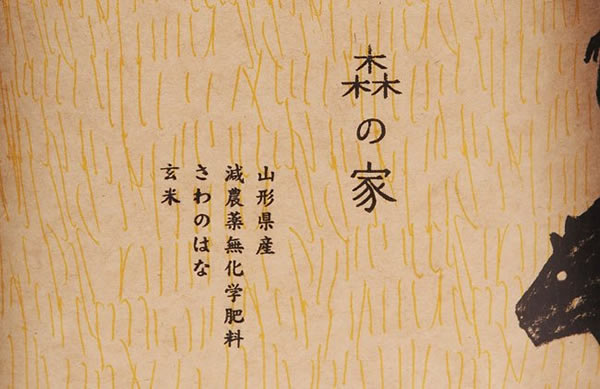 森の家
山形県産
減農薬無化学肥料
さわのはな
玄米